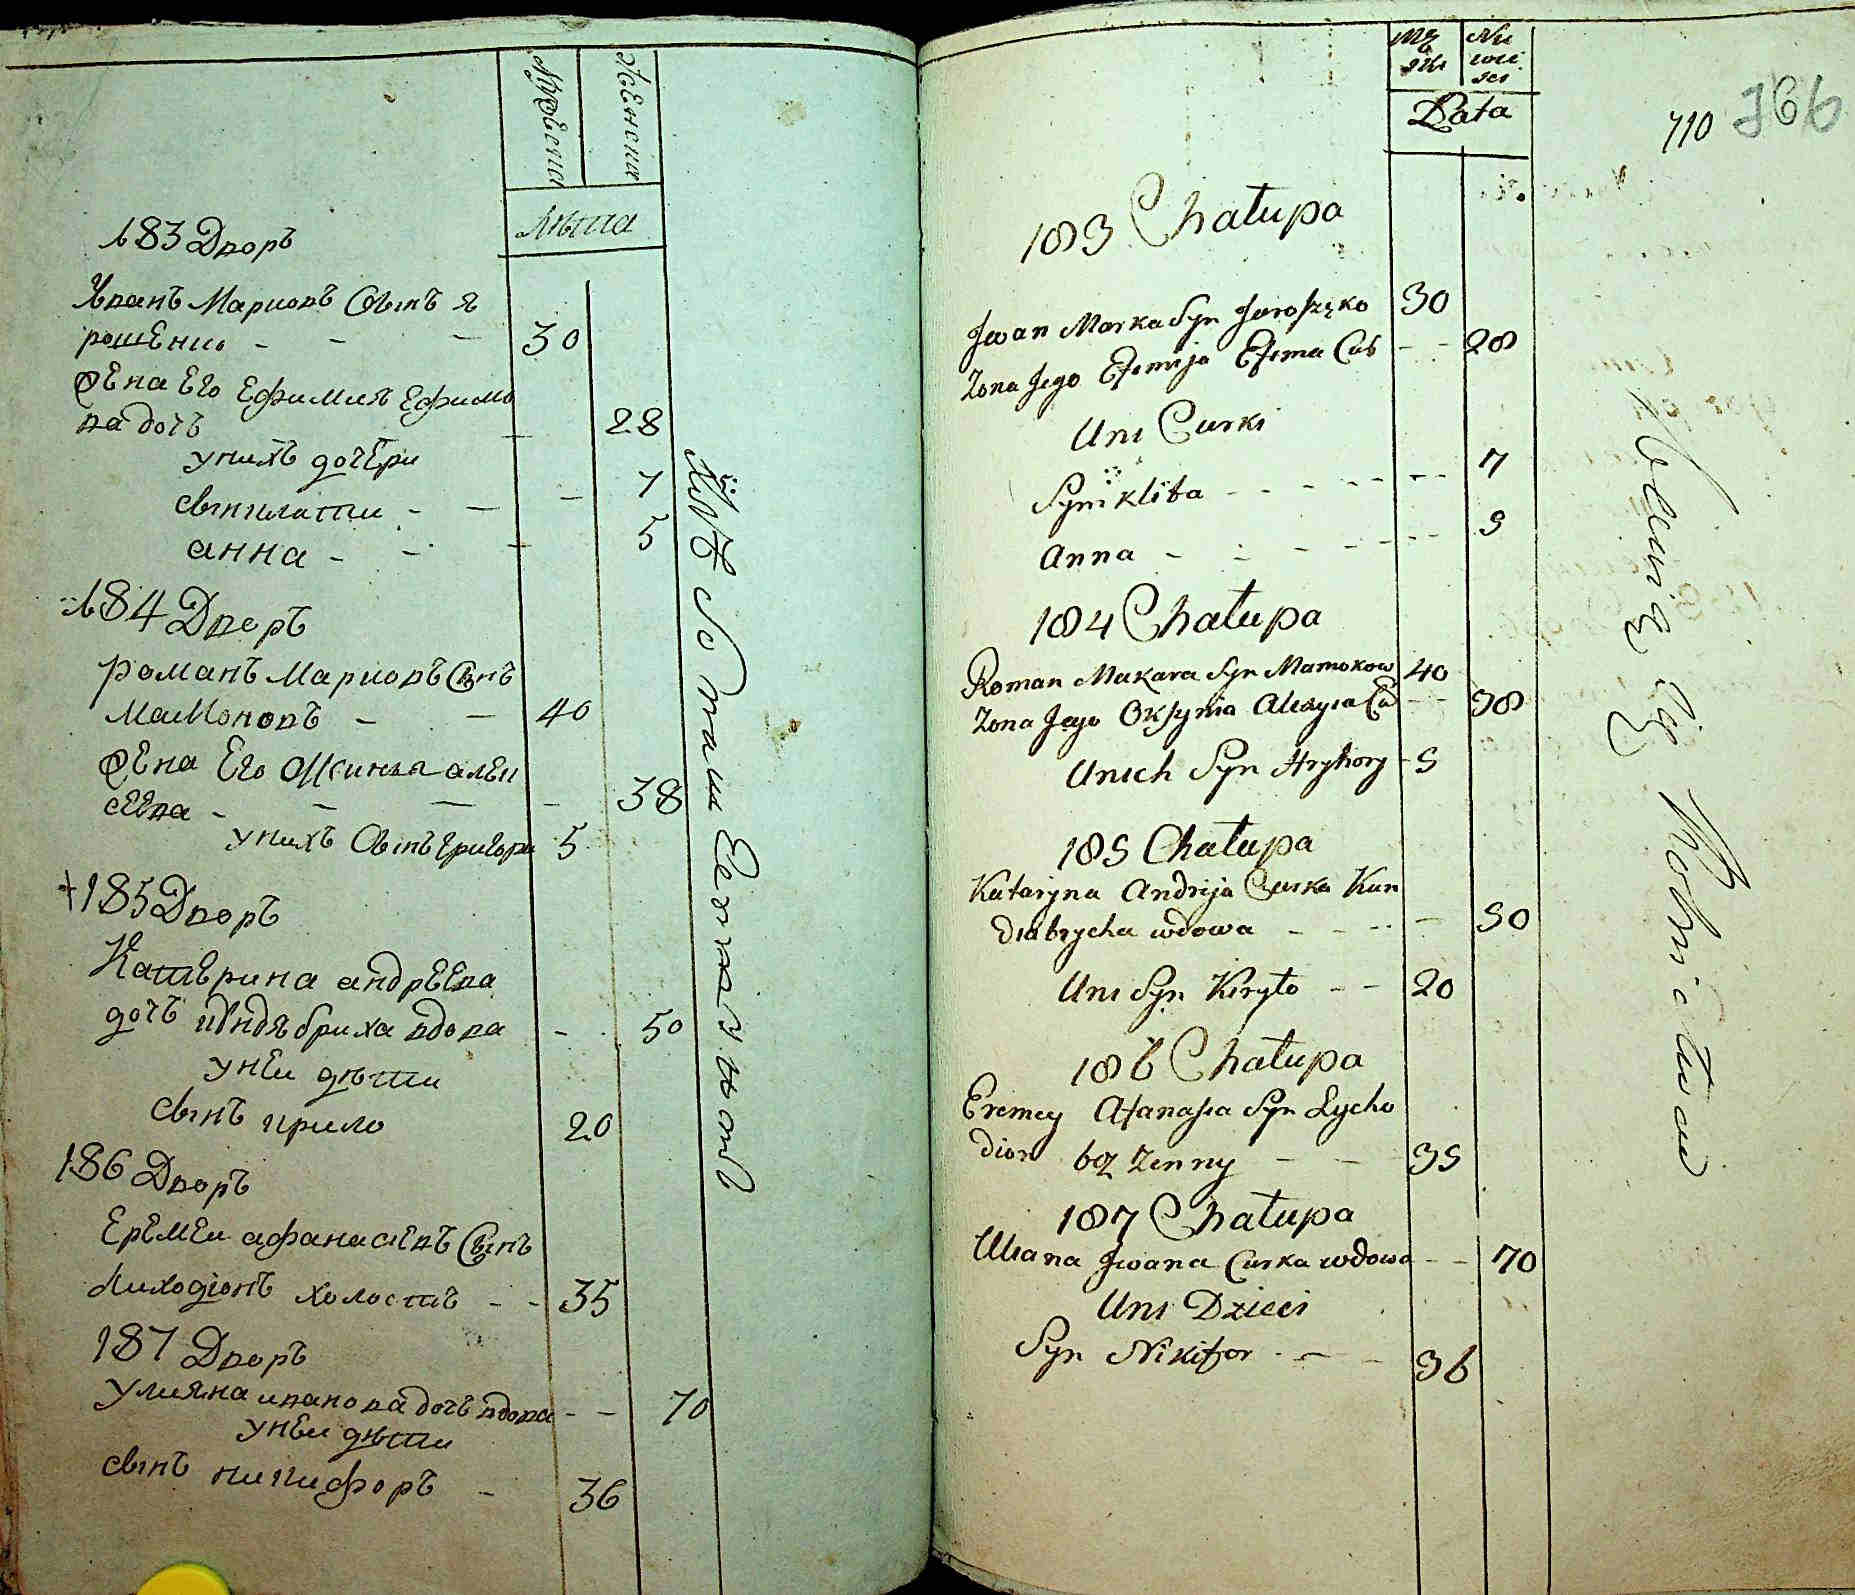 Мужеска
Женска
Лѣта
183 Дворъ
Иванъ Марковъ Сынъ Я
рошенко - - - 30
Жена Его Ефимия Ефимо
ва дочь - 28
у нихъ дочери
Синклити - - - 7
анна - - - 5
184 Дворъ
романъ Марковъ Сынъ
Мамоновъ - - 40
Жена Его Оксинья алек
сеева - - - - 38
у нихъ Сынъ григори 5
185 Дворъ
Катерина андреева
дочь кондябриха вдова - 50
у неи дѣти
сынъ кирило 20
186 Дворъ
Еремеи афанасиевъ Сынъ
Лиходіонъ холостъ - - 35
187 Дворъ
улияна иванова дочь вдова - - 70
у неи дѣти
сынъ никифоръ - 36
Męz
skie
Nie
wie
scie
Lata
710 366
183 Chałupa
Jwan Marka Syn Jaroszęko 30
Zona Jego Efemija Efima Cur - - 28
Uni Curki
Syniklita - - - - - 7
Anna - - - - - 5
184 Chałupa
Roman Makara Syn Mamokow 40
Zona Jego Oksynia Alexyia Cu - - 38
Unich Syn Hryhory - 5
185 Chałupa
Kataryna Andrija Curka Kun
diabrycha wdowa - - - - 50
Uni Syn Kiryło - - 20
186 Chałupa
Eremey Afanasia Syn Lycho
dion bez Zenny - - 35
187 Chałupa
Uliana Jwana Curka wdowa - - 70
Uni Dzieci
Syn Nikifor - - - 36